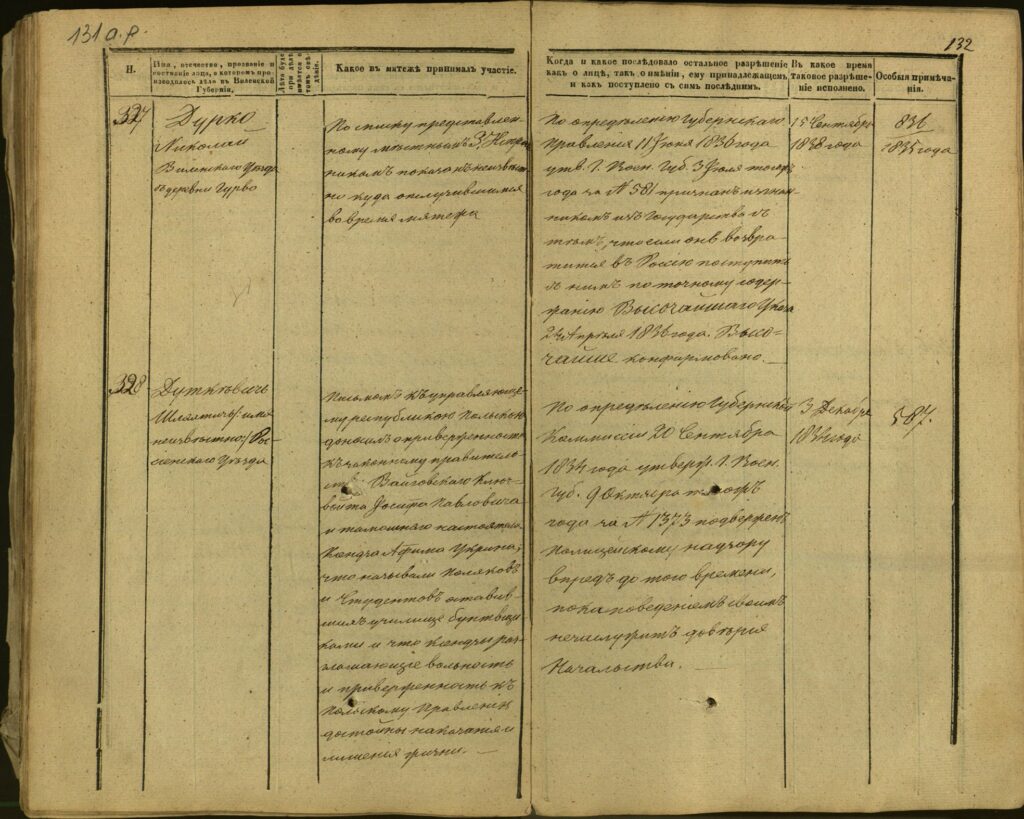 131 а.р.
132
Н.
Имя, отчество, прозваніе и
состояніе лица, о которомъ про-
изводилось дѣло въ Виленской
Губерніи.
Лѣта буде
при дѣлѣ
имѣется о
томъ свѣ-
дѣніе.
Какое въ мятежѣ принималъ участіе.
Когда и какое послѣдовало остальное разрѣшеніе
какъ о лицѣ, такъ о имѣніи, ему принадлежащемъ
и какъ поступлено съ симъ послѣднимъ.
Въ какое время
таковое разрѣше-
ніе исполнено.
Особыя примѣча-
нія.
327
Дурко
Николай
Виленскаго Уѣзда
съ деревни Гурво
По списку представлен-
ному мѣстнымъ З. Исправ
никомъ показанъ неизвѣст
но куда отлучившимся
во время мятежа
По опредѣленію Губернскаго
Правленія 11 Іюня 1836 года
утв. Г. Воен. Губ. 3 Іюля того жъ
года за № 581 признанъ изгнан
никомъ изъ Государства съ
тѣмъ, что если онъ возвра-
тится въ Россію поступить
съ нимъ по точному содер-
жанію Высочайшаго Указа
Апрѣля 1836 года. Высо-
чайше конфирмовано.
15 Сентября
1838 года
836
1835 года
328
Дуткѣвичь
Шляхтичъ имя
неизвѣстно Рос-
сіенскаго Уѣзда
Письмомъ къ управляюще
му республикою Польскою
доносилъ о приверженности
къ законному правитель-
ству Войговскаго Ключ-
войта Іосифа Павловича
и тамошняго настоятеля
Ксендза
что называли Поляковъ
и Студентовъ оставив-
шихъ училище бунтовщи
ками и что ксендзы раз-
глашающіе вольность
и приверженность къ
Польскому Правленію
достойны наказанія и
лишенія жизни.
По опредѣленію Губернской
Коммиссіи 20 Сентября
1834 года утверж. Г. Воен.
Губ. 9 Октября того жъ
года за № 1373 подверженъ
Полицейскому надзору
впредь до того времени,
пока поведеніемъ своимъ
незаслужитъ довѣрія
Начальства.
3 Декабря
1834 года
587.